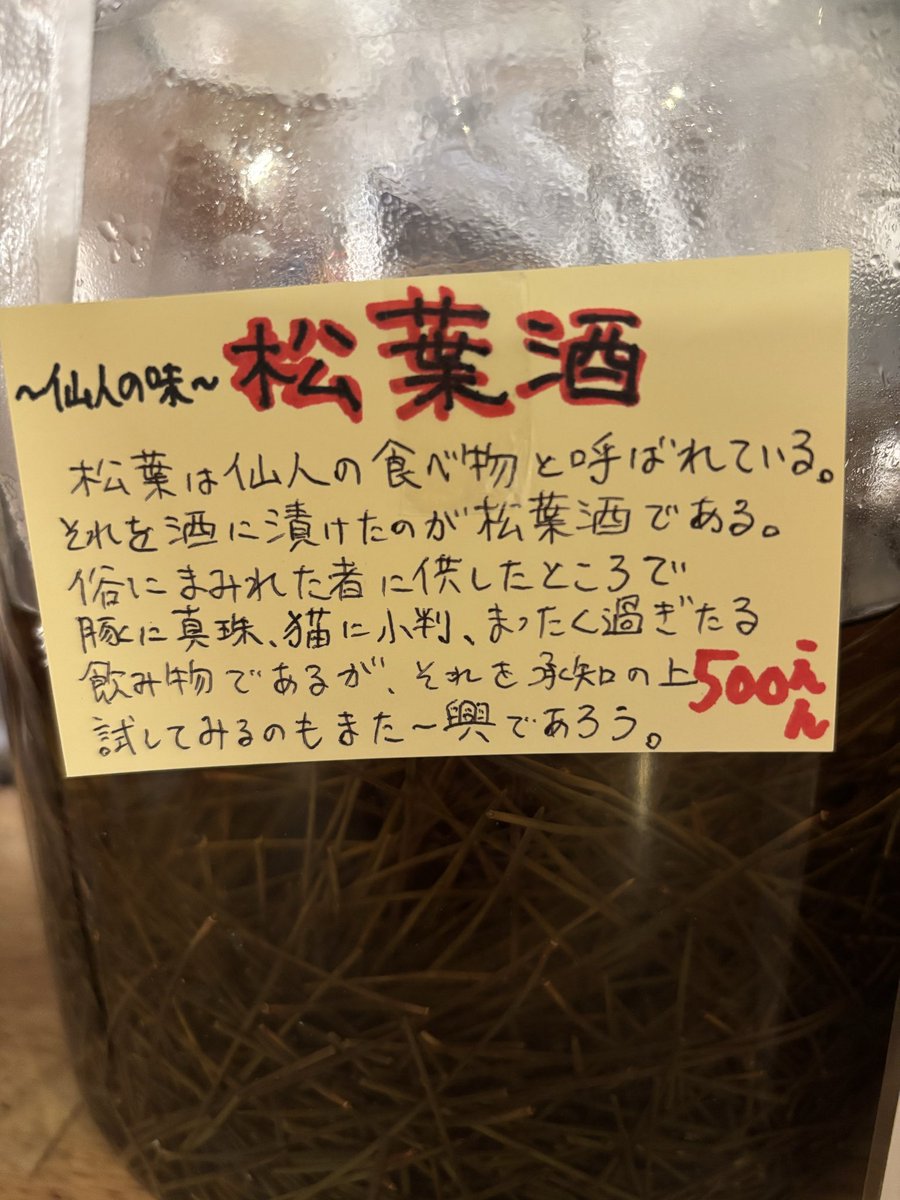 ～仙人の味～ 松葉酒
松葉は仙人の食べ物と呼ばれている。
それを酒に漬けたのが松葉酒である。
俗にまみれた者に供したところで
豚に真珠、猫に小判、まったく過ぎたる
飲み物であるが、それを承知の上
試してみるのもまた一興であろう。
500えん